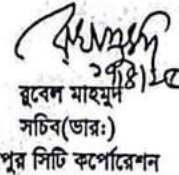 রুবেল মাহমুদ
সচিব(ভারঃ)
পুর সিটি কর্পোরেশন